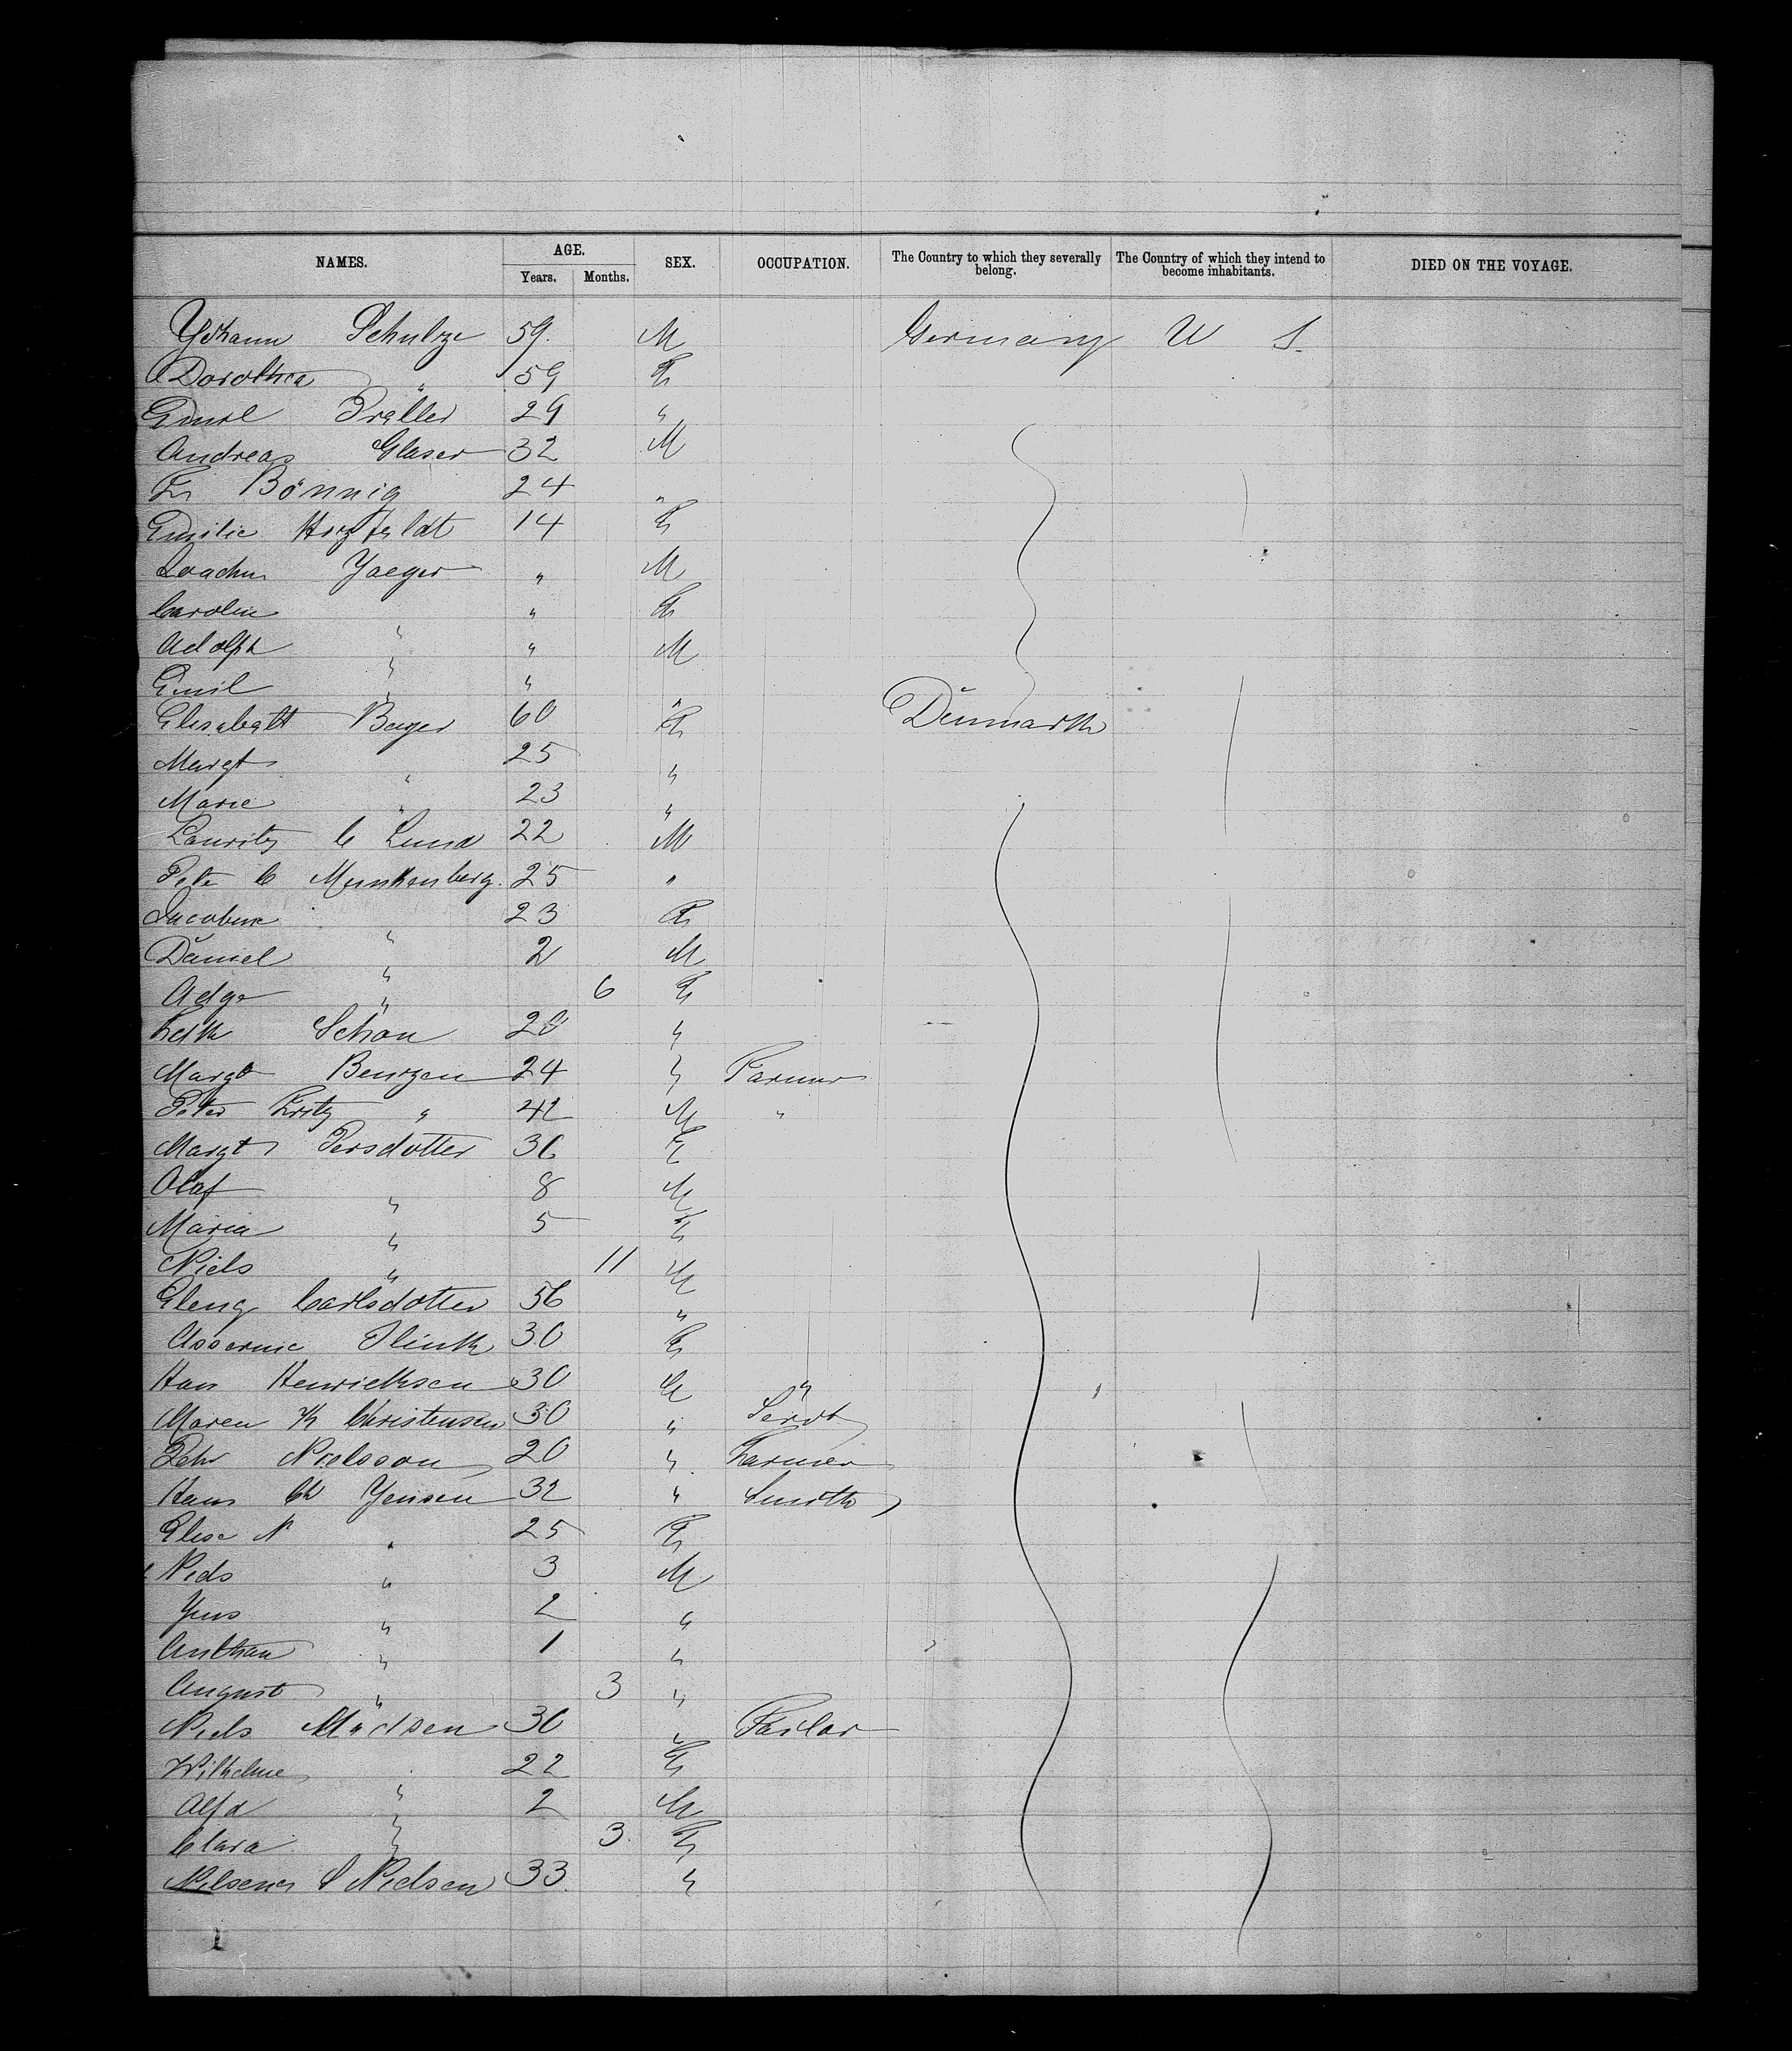 NAMES. AGE. Years. Months. SEX. OCCUPATION. The Country to which they severally belong. The Country of which they intend to become inhabitants. DIED ON THE VOYAGE.
Yohann Schultze 59. M Germany U S.
Dorothea " 59 F
Emil Praller 29 "
Andreas Glaser 32 M
Fr Bönnig 24 "
Emilie 14 F
Yaeger " M
Carolin " " F
Adolph " " M
Emil " " "
Elisabett Beyer 60 F Denmark
Margt " 25 "
Marie " 23 "
Lauritz C Lund 22 M
Pete C Munkenberg. 25 "
Jacobine " 23 F
Daniel " 2 M
" 6 F
Schou 20 "
Margt Benzen 24 " Farmer
Peter Fritz " 42 M "
Margt Persdotter 36 F
Olaf " 8 M
Maria " 5 F
Niels " 11 M
Carlsdotter 56 "
30 F
Hans Henricksen 30 M "
Maren K Christensen 30 " Servt
Pehr Nielsson 20 " Farmer
Hans Ch Yensen 32 " Smith
Elise N " 25 F
Niels " 3 M
Yens " 2 "
Anthan " 1 "
August " 3 "
Niels Madsen 30 " Tailor
Wilhelme " 22 F
Alfd " 2 M
Clara " 3 F
S Nielsen 33 "